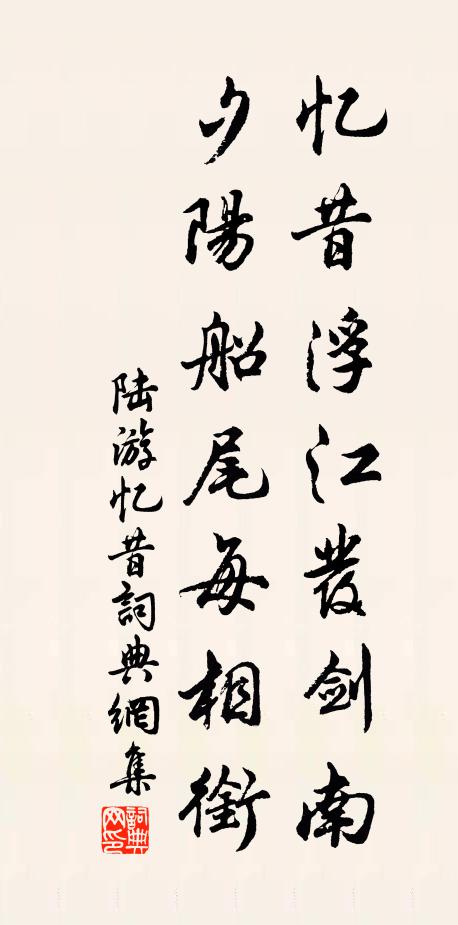 忆昔浮江發剑南
夕陽船尾每相銜
陆游忆昔詞典網集
詞典
网印